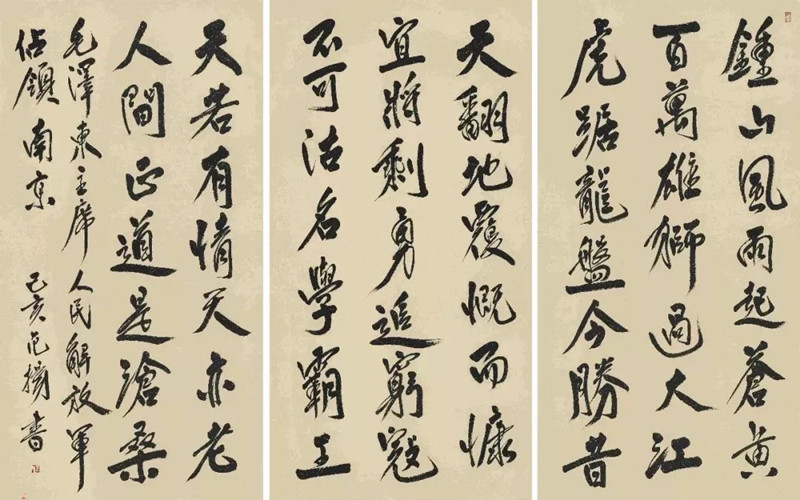 鍾山風雨起蒼黄
百萬雄獅過大江
虎踞龍盤今勝昔
天翻地覆慨而慷
宜將剩勇追窮寇
不可沽名學霸王
天若有情天亦老
人間正道是滄桑
毛澤東主席人民解放軍
佔領南京 己亥范揚書